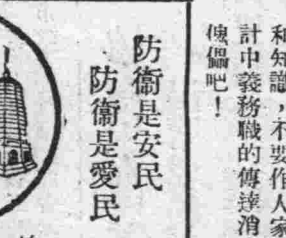 和知識，不要作人家
計中義務職的傳達消
傀儡吧！
防衞是安民
防衞是愛民